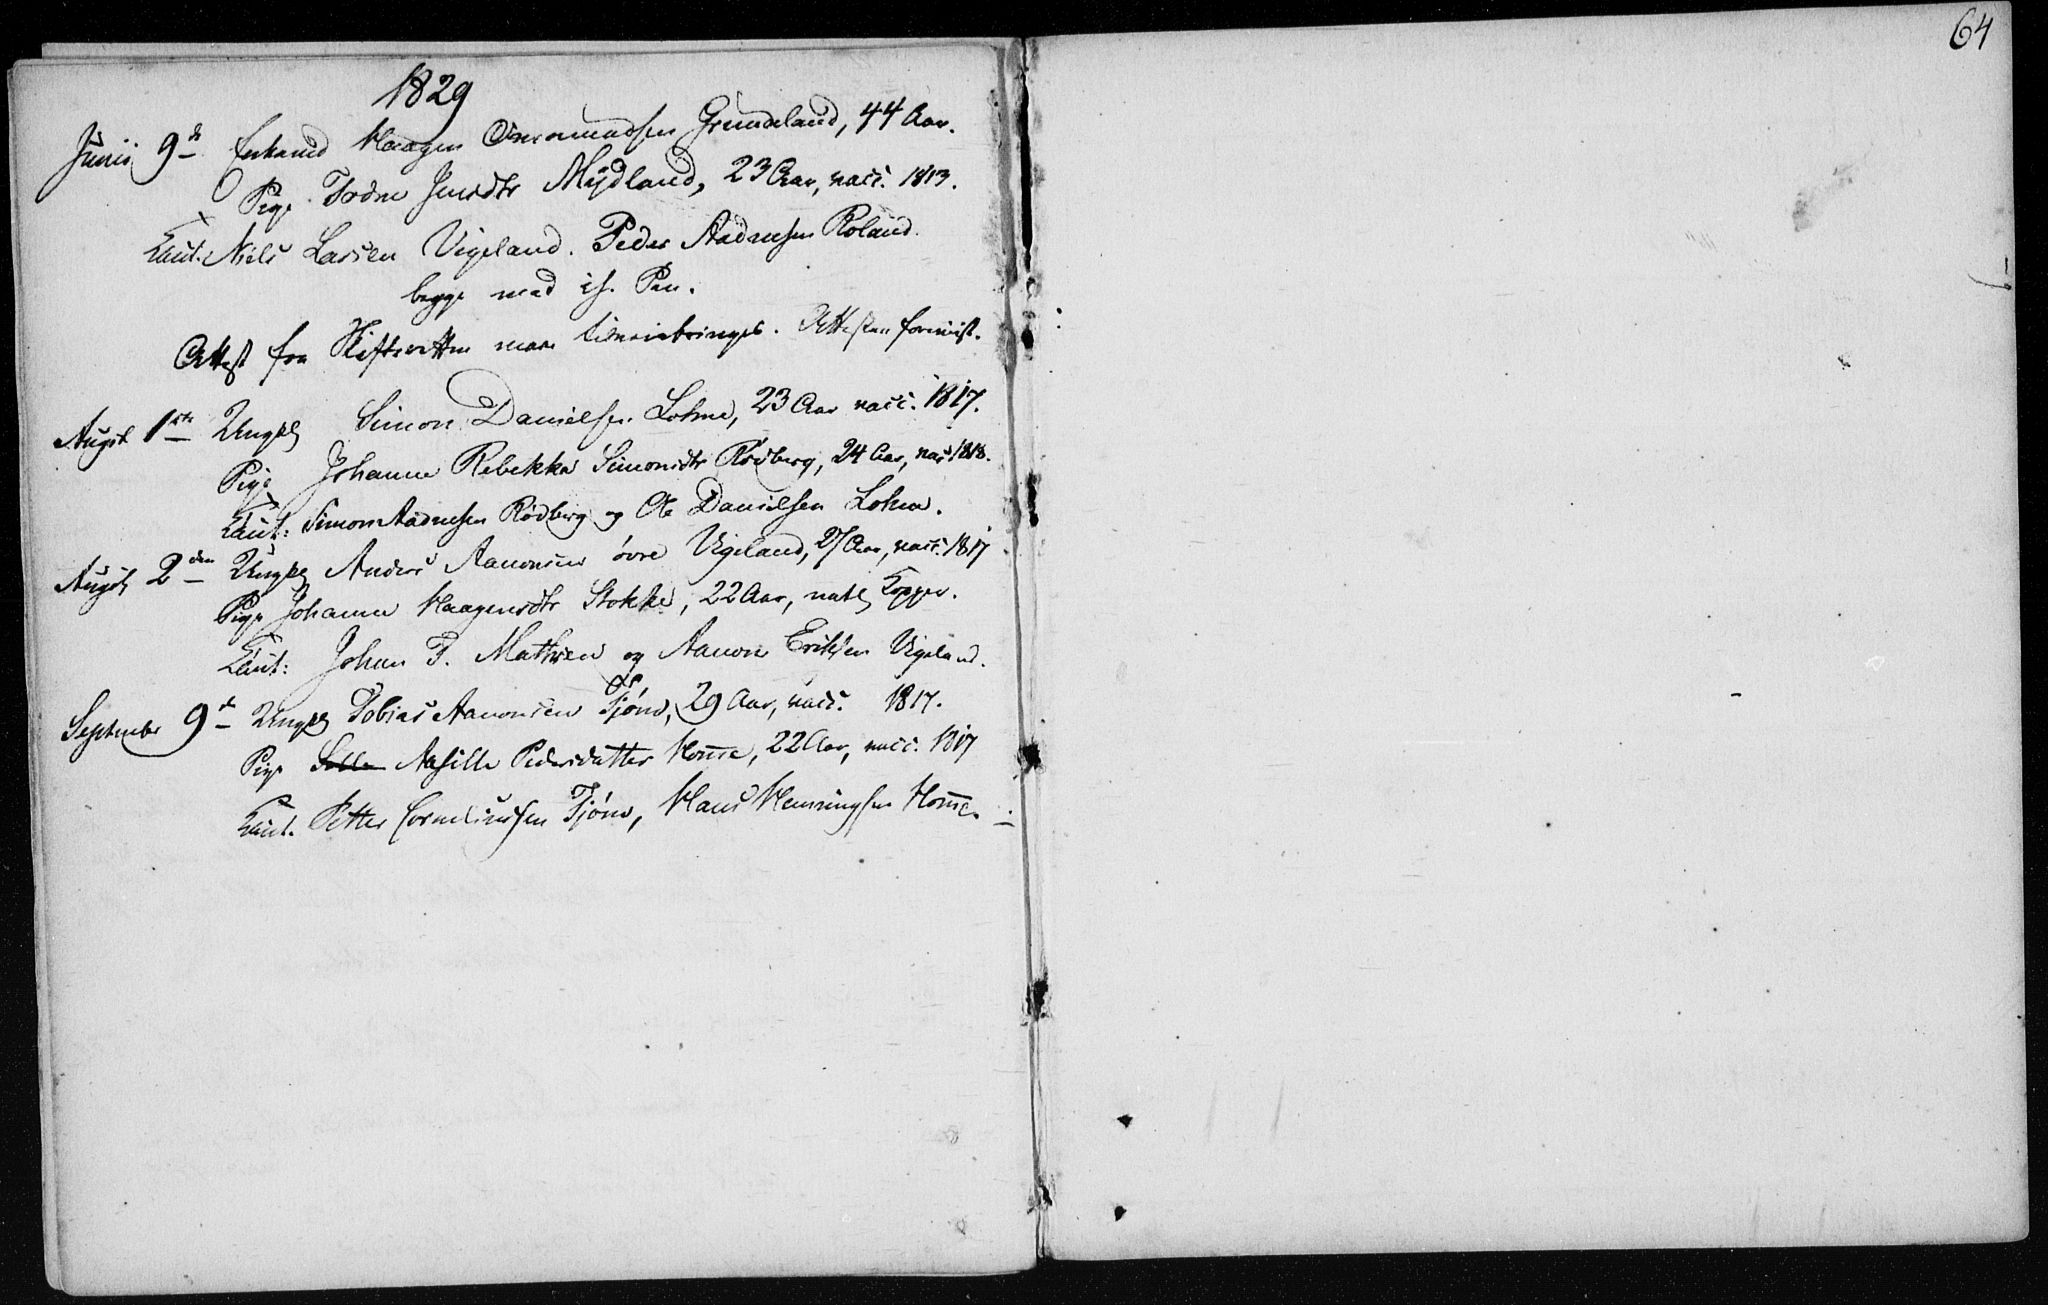 1829
Junii 9d Enkemd Haagen Ommundsen Grundeland, 44 Aar.
Pige Todne Jensdtr Mydland, 23 Aar, vacc. 1813.
Caut. Niels Larsen Vigeland. Peder Aadnesen Roland.
begge med is. Pen.
Attest fra Skifteretten maae tilveiebringes. Attesten foreviist.
Augst 1ste Ungkl Simon Danielsen Lohne, 23 Aar vacc. 1817.
Pige Johanne Rebekka Simonsdtr Rødberg, 24 Aar, vac 1818.
Caut: Simon Aadnesen Rødberg og Ole Danielsen Lohne.
Augst 2den Ungkl Anders Aanonsen övre Vigeland, 27 Aar, vacc. 1817
Pige Johanne Haagensdtr Stokke, 22 Aar, natl Kopper.
Caut: Johan F. Mathsen og Aanon Eriksen Vigeland.
September 9d Ungkl Tobias Aanonsen Tjöm, 29 Aar, vacc. 1817.
Pige Aasille Pedersdatter Homme, 22 Aar, vacc. 1817
Caut. Petter Corneliussen Tjöm, Hans Henningsen Homme.
64